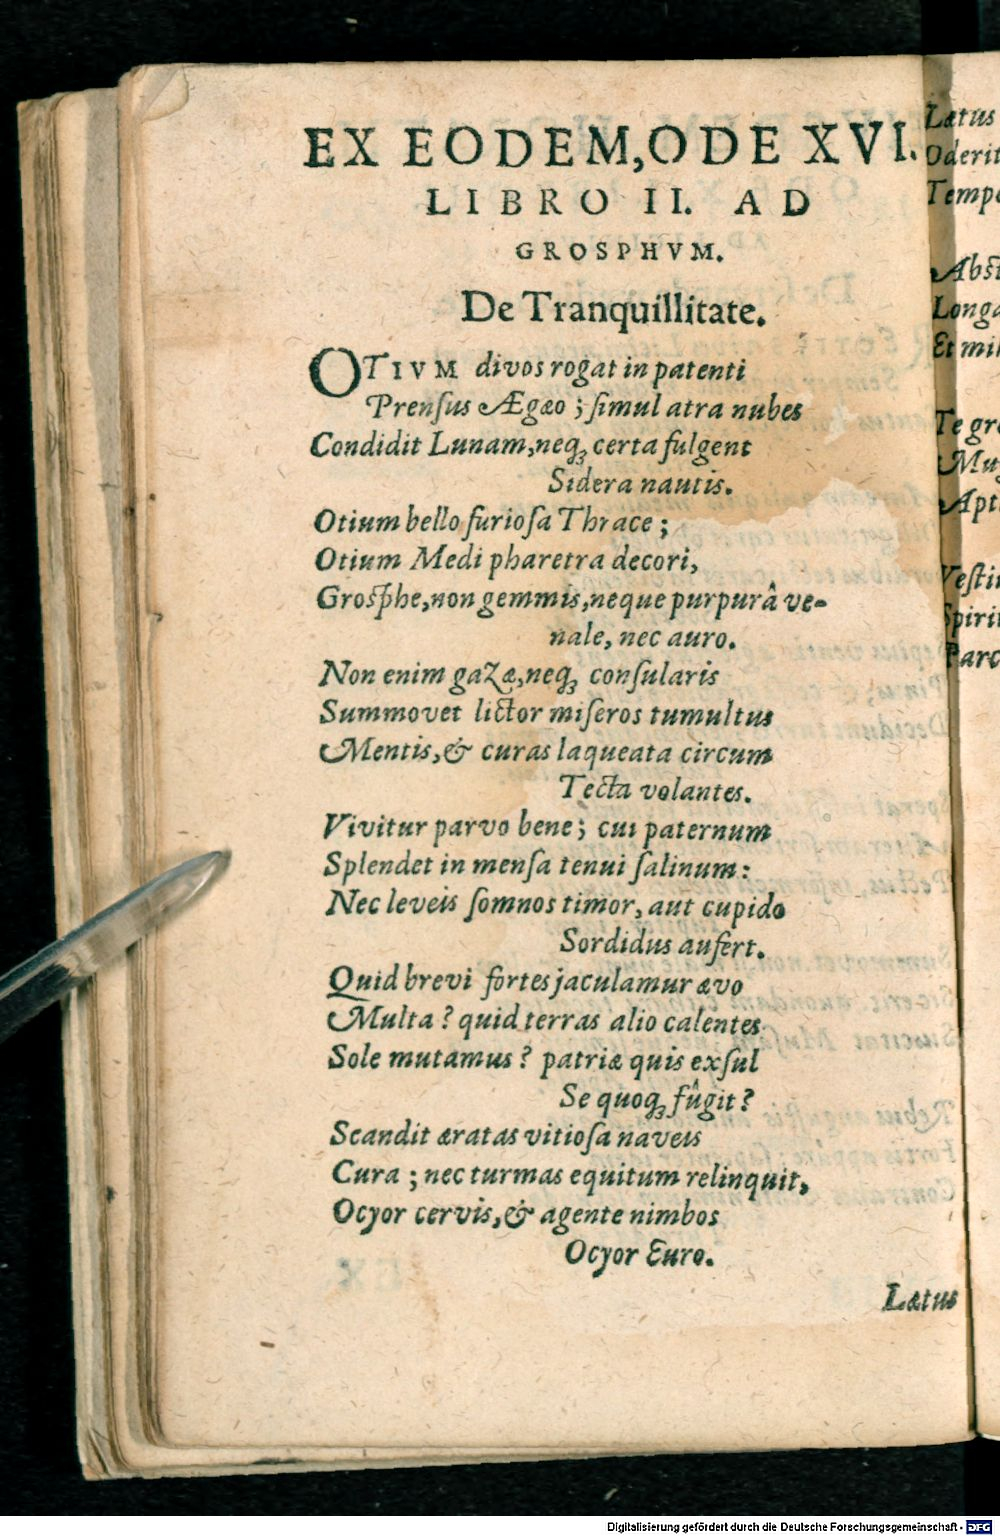 EX EODEM, ODE XVI.
LIBRO II. AD
GROSPHVM.
De Tranquillitate.
OTIVM divos rogat in patenti
Prensus Ægæo; simul atra nubes
Condidit Lunam, neqꝫ certa fulgent
Sidera nautis.
Otium bello furiosa Thrace;
Otium Medi pharetra decori,
Grosphe, non gemmis, neque purpurâ ve-
nale, nec auro.
Non enim gazæ, neqꝫ consularis
Summovet lictor miseros tumultus
Mentis, & curas laqueata circum
Tecta volantes.
Vivitur parvo bene; cui paternum
Splendet in mensa tenui salinum:
Nec leveis somnos timor, aut cupido
Sordidus aufert.
Quid brevi fortes jaculamur ævo
Multa? quid terras alio calentes
Sole mutamus? patriæ quis exsul
Se quoqꝫ fûgit?
Scandit æratas vitiosa naveis
Cura; nec turmas equitum relinquit,
Ocyor cervis, & agente nimbos
Ocyor Euro.
Lætus
Lætus
Oderit
Te gre
Et mil
Digitalisierung gefördert durch die Deutsche Forschungsgemeinschaft - DFG